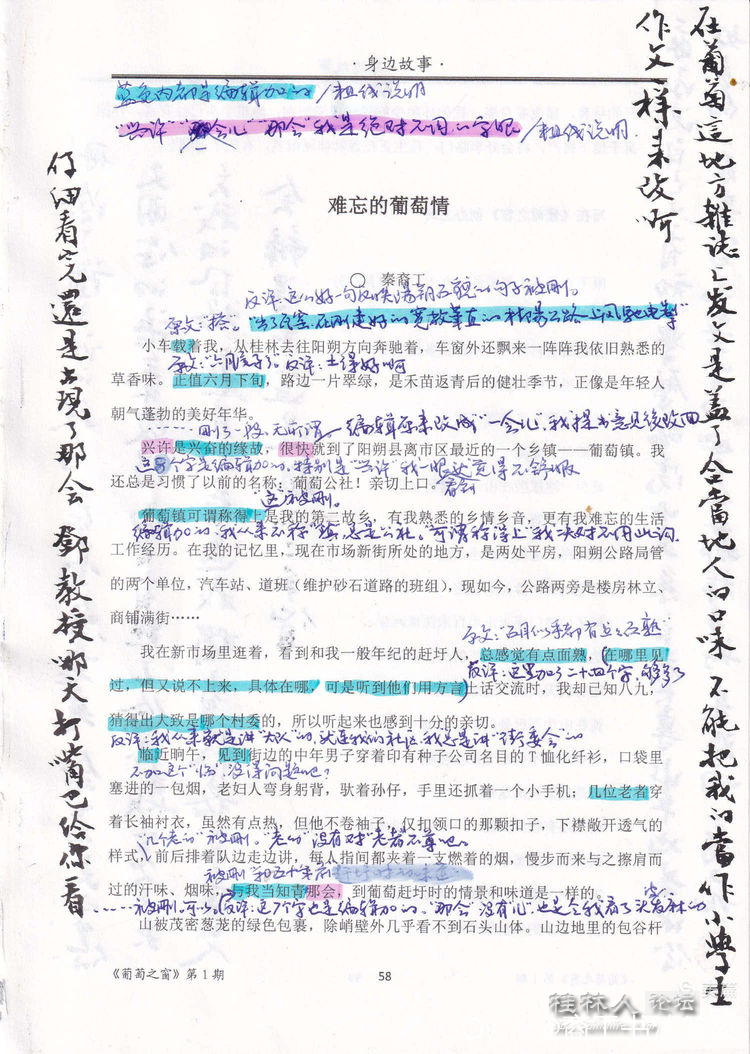 ·身边故事·
蓝色内都是编辑加的/粗线说明
"兴许""那会儿""那会"我是绝对不用的字眼/粗线说明
难忘的葡萄情
〇 秦裔工
反评:这么好一句反映荡朔互貌的句子被删。
原文"搭"。
小车载着我，从桂林去往阳朔方向奔驰着，车窗外还飘来一阵阵我依旧熟悉的
反评:土得好啊
草香味。正值六月下旬，路边一片翠绿，是禾苗返青后的健壮季节，正像是年轻人
朝气蓬勃的美好年华。
……删了一段,无所谓。编辑原来改成"一会儿",我提出意见后改回
兴许是兴奋的缘故，很快就到了阳朔县离市区最近的一个乡镇——葡萄镇。我
这8个字是编辑加的,特别是"兴许"我一眼
还总是习惯了以前的名称：葡萄公社！亲切上口。
这被删。
葡萄镇可谓称得上是我的第二故乡，有我熟悉的乡情乡音，更有我难忘的生活
编辑加的,我从来不称"镇",总是公社。"可谓称得上"我决对不用此词
工作经历。在我的记忆里，现在市场新街所处的地方，是两处平房，阳朔公路局管
的两个单位，汽车站、道班（维护砂石道路的班组），现如今，公路两旁是楼房林立、
商铺满街……
我在新市场里逛着，看到和我一般年纪的赶圩人，总感觉有点面熟，在哪里见
反评:这里加了二十四个字,够多了
过，但又说不上来，具体在哪，可是听到他们用方言土话交流时，我却已知八九，
猜得出大致是哪个村委的，所以听起来也感到十分的亲切。
反评:我从来就是讲"大队"的,就连我的社区,我总是讲"街委会"的
临近晌午，见到街边的中年男子穿着印有种子公司名目的T恤化纤衫，口袋里
不加这个"临"没得问题吧?
塞进的一包烟，老妇人弯身躬背，驮着孙仔，手里还抓着一个小手机；几位老者穿
着长袖衬衣，虽然有点热，但他不卷袖子，仅扣领口的那颗扣子，下襟敞开透气的
"几个老的"被删。"老的"没有对"老者"不尊吧。
样式，前后排着队边走边讲，每人指间都夹着一支燃着的烟，慢步而来与之擦肩而
过的汗味、烟味，与我当知青那会，到葡萄赶圩时的情景和味道是一样的。
……被删,可以。反评:这7个字也是编辑加的。"那会"没有"儿",也是令我看了头发麻的
山被茂密葱茏的绿色包裹，除峭壁外几乎看不到石头山体。山边地里的包谷杆
《葡萄之窗》第1期
58
在葡萄這地方雜誌上发文是盖了合當地人的口味 不能把我的當作小學生
作文一樣来改啊
仔细看完還是出現了那会 鄧教授哪天打嘴巴给你看
桂林人论坛